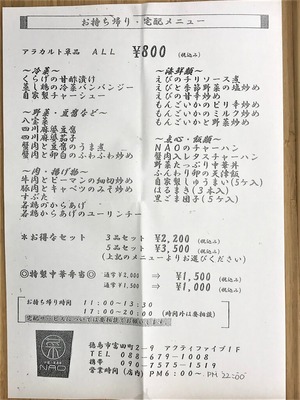 お持ち帰り・宅配メニュー
アラカルト単品 ALL ¥800 (税込み)
～冷菜～
くらげの甘酢漬け
蒸し鶏の冷菜バンバンジー
自家製チャーシュー
～野菜・豆腐など～
八宝菜
四川麻婆豆腐
四川麻婆茄子
蟹肉と豆腐のうま煮
蟹肉と卵白のふわふわ炒め
～肉・揚げ物～
牛肉とピーマンの細切り炒め
豚肉とキャベツのみそ炒め
すぶた
若鶏のからあげ
若鶏からあげのユーリンチー
～海鮮類～
えびのチリソース煮
えびと季節野菜の塩炒め
えびのマヨネーズ炒め
もんごいかのピリ辛炒め
もんごいかのミルク炒め
もんごいかと野菜炒め
～点心・飯類～
NAOのチャーハン
蟹肉入レタスチャーハン
野菜たっぷり中華丼
ふんわり卵の天津飯
自家製しゅうまい(5ケ入)
はるまき(3本入)
黒ごま団子(5ケ入)
＊お得なセット 3品セット ¥2,200 (税込み)
5品セット ¥3,500 (税込み)
(上記のメニューよりお選びください)
◎特製中華弁当◎ 通常¥2,000 ⇒ ¥1,500 (税込み)
通常¥1,500 ⇒ ¥1,000 (税込み)
お持ち帰り時間 11:00～13:30
17:00～20:00 (時間外は要相談)
宅配サービスについては要相談でお願いします。
NAO
徳島市富田町2-9 アクティファイブ1F
TEL 088-679-1008
携帯 090-7575-1519
営業時間(店内) PM6:00～ PM 22:00